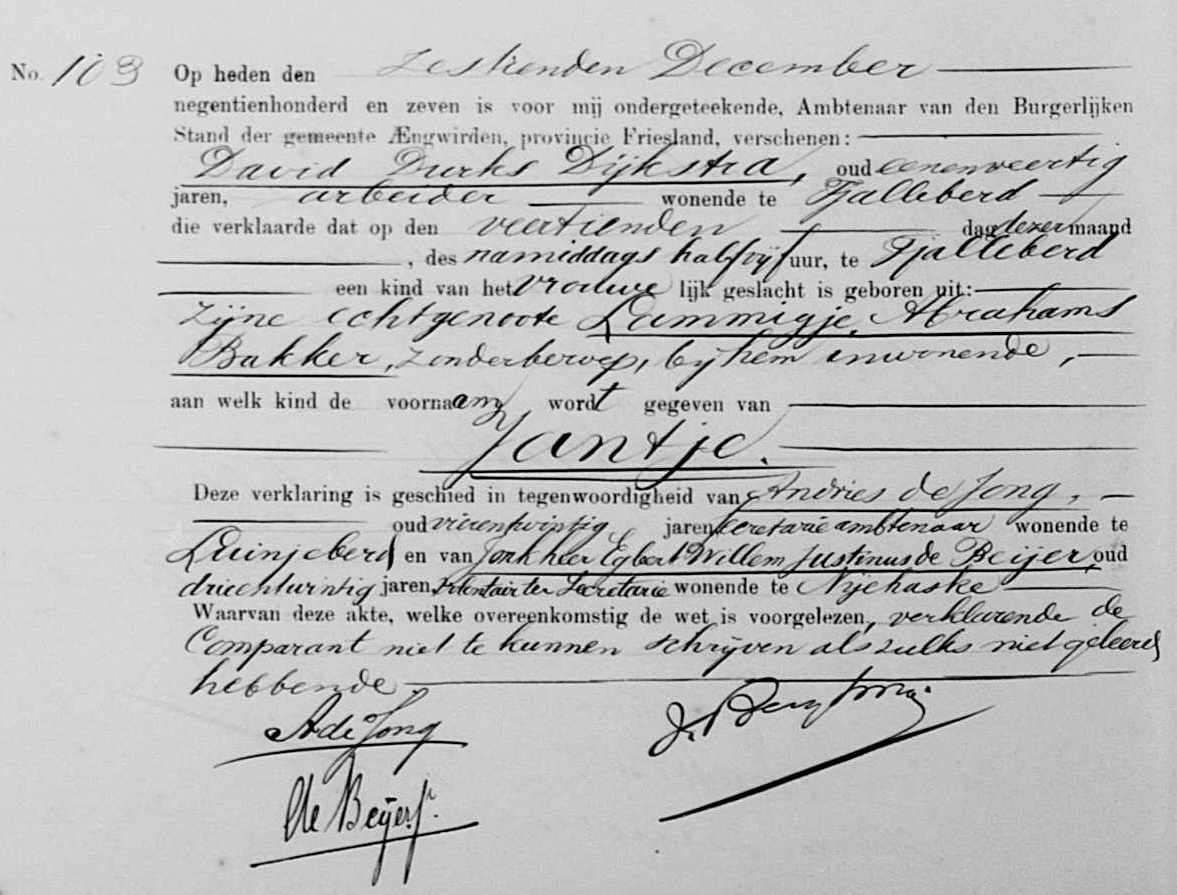 No. 103 Op heden den zestienden December
negentienhonderd en zeven is voor mij ondergeteekende, Ambtenaar van den Burgerlijken
Stand der gemeente Ængwirden, provincie Friesland, verschenen:
David Durks Dijkstra, oud eenenveertig
jaren, arbeider wonende te Tjalleberd
die verklaarde dat op den veertienden dag dezer maand
, des namiddags half vijf uur, te Tjalleberd
een kind van het vrouwelijk geslacht is geboren uit:
zijne echtgenoote Lammigje Abrahams
Bakker, zonder beroep, bij hem inwonende,
aan welk kind de voornaam wordt gegeven van
Jantje.
Deze verklaring is geschied in tegenwoordigheid van Andries de Jong,
oud vierentwintig jaren secretarie ambtenaar wonende te
Luinjeberd en van Jonkheer Egbert Willem Justinus de Beijer, oud
drieentwintig jaren, volontair ter Secretarie wonende te Nijehaske
Waarvan deze akte, welke overeenkomstig de wet is voorgelezen, verklarende de
Comparant niet te kunnen schrijven als zulks niet geleerd
hebbende.
A de Jong
de Beijer